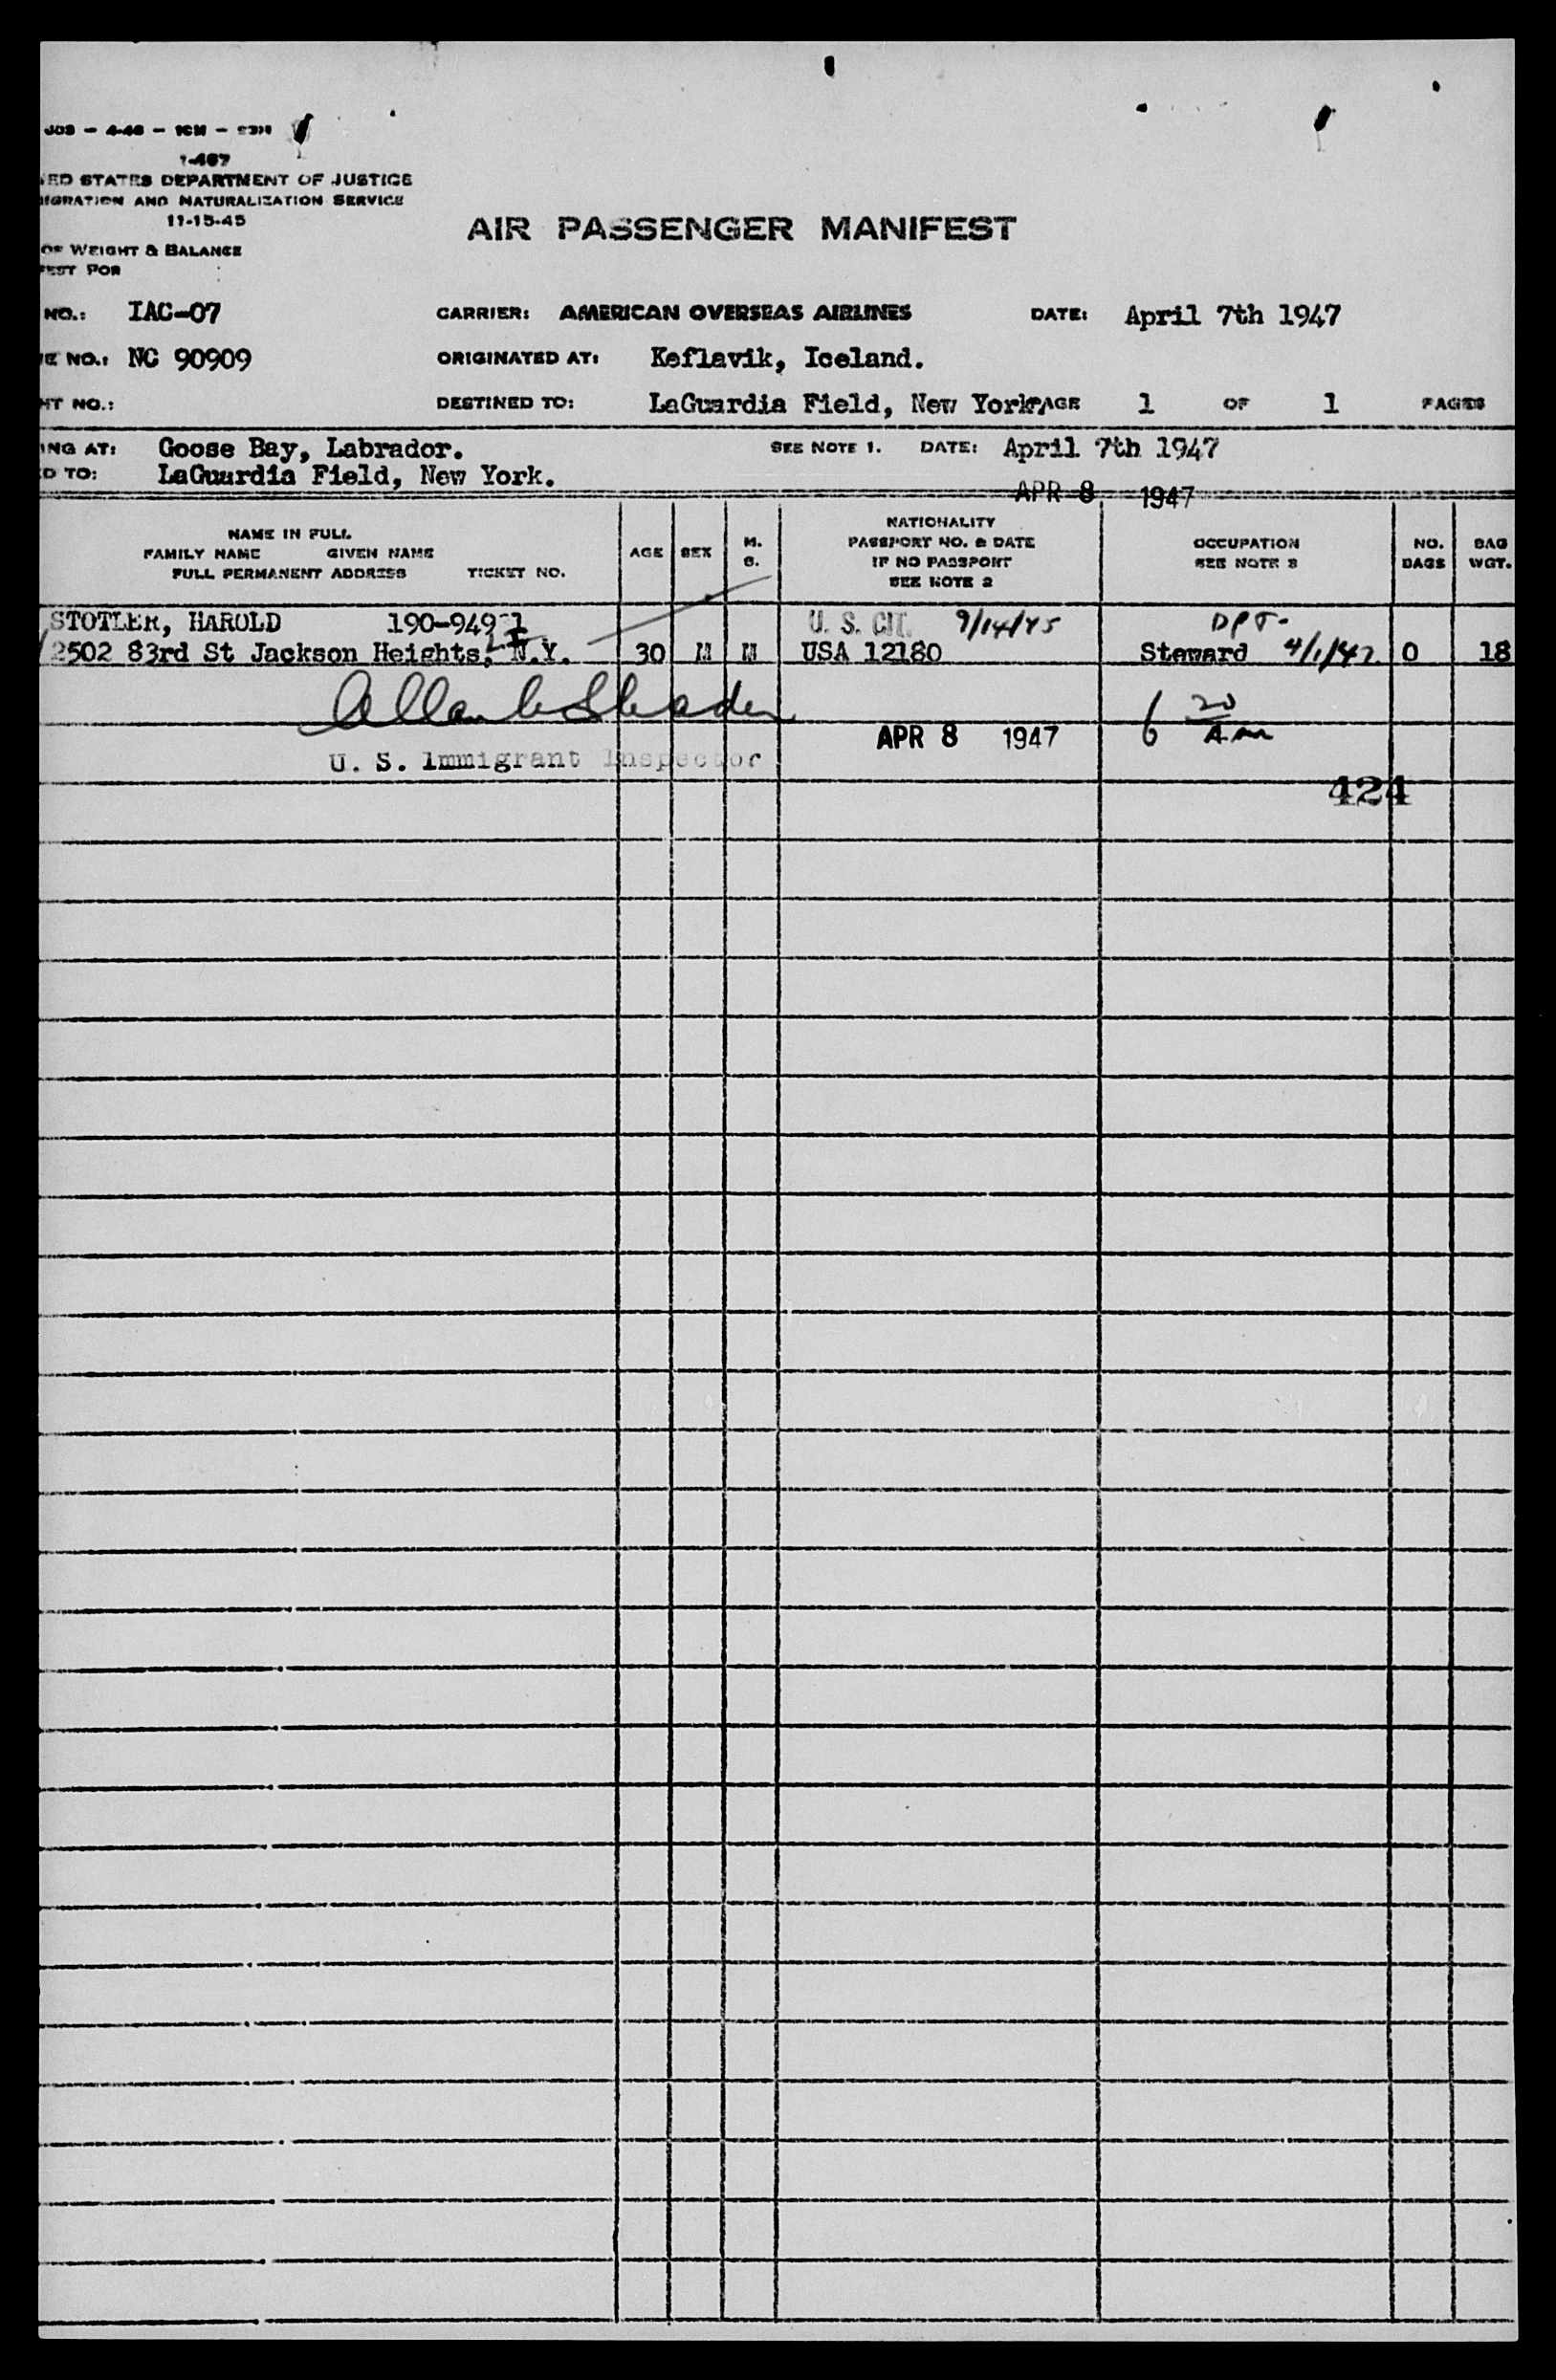 1-467
ED STATES DEPARTMENT OF JUSTICE
IGRATION AND NATURALIZATION SERVICE
11-15-45
AIR PASSENGER MANIFEST
OF WEIGHT & BALANCE
EST FOR
NO.: IAC-07 CARRIER: AMERICAN OVERSEAS AIRLINES DATE: April 7th 1947
E NO.: NC 90909 ORIGINATED AT: Keflavik, Iceland.
HT NO.: DESTINED TO: LaGuardia Field, New York PAGE 1 OF 1 PAGES
ING AT: Goose Bay, Labrador. SEE NOTE 1. DATE: April 7th 1947
D TO: LaGuardia Field, New York.
APR 8 1947
NAME IN FULL
FAMILY NAME GIVEN NAME
FULL PERMANENT ADDRESS TICKET NO.
AGE SEX M. S.
NATIONALITY
PASSPORT NO. & DATE
IF NO PASSPORT
SEE NOTE 2
OCCUPATION
SEE NOTE 3
NO. BAGS
BAG WGT.
STOTLER, HAROLD U. S. CIT. 9/14/45 DPT.
2502 83rd St Jackson Heights, L I N.Y. 30 M M USA 12180 Steward 4/1/47 0 18
6 20 AM
APR 8 1947
U. S. Immigrant Inspector
424